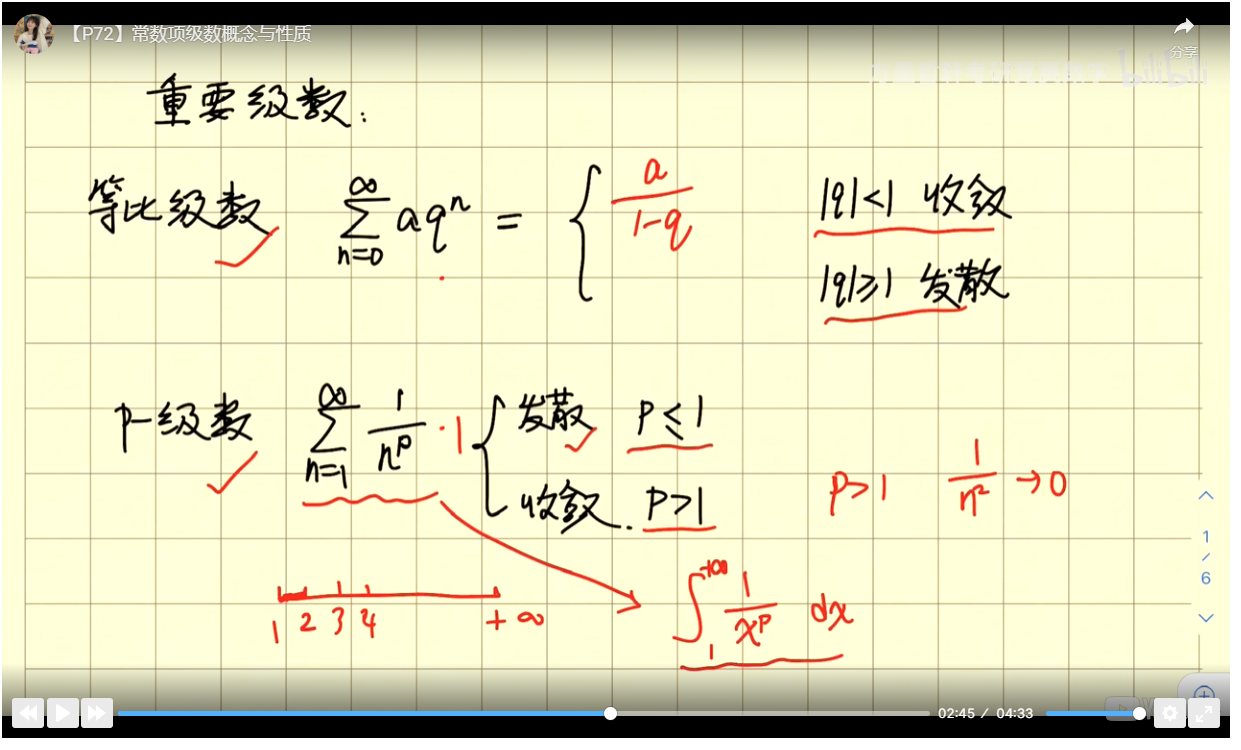 【P72】常数项级数概念与性质
分享
bilibili
重要级数:
等比级数 ∑_{n=0}^{∞} aq^n = { a/(1-q) |q|<1 收敛
|q|≥1 发散
p-级数 ∑_{n=1}^{∞} 1/n^p · 1 { 发散 P≤1
收敛. P>1
P>1 1/n² →0
1 2 3 4 +∞
∫_1^{+∞} 1/x^p dx
1
/
6
02:45 / 04:33